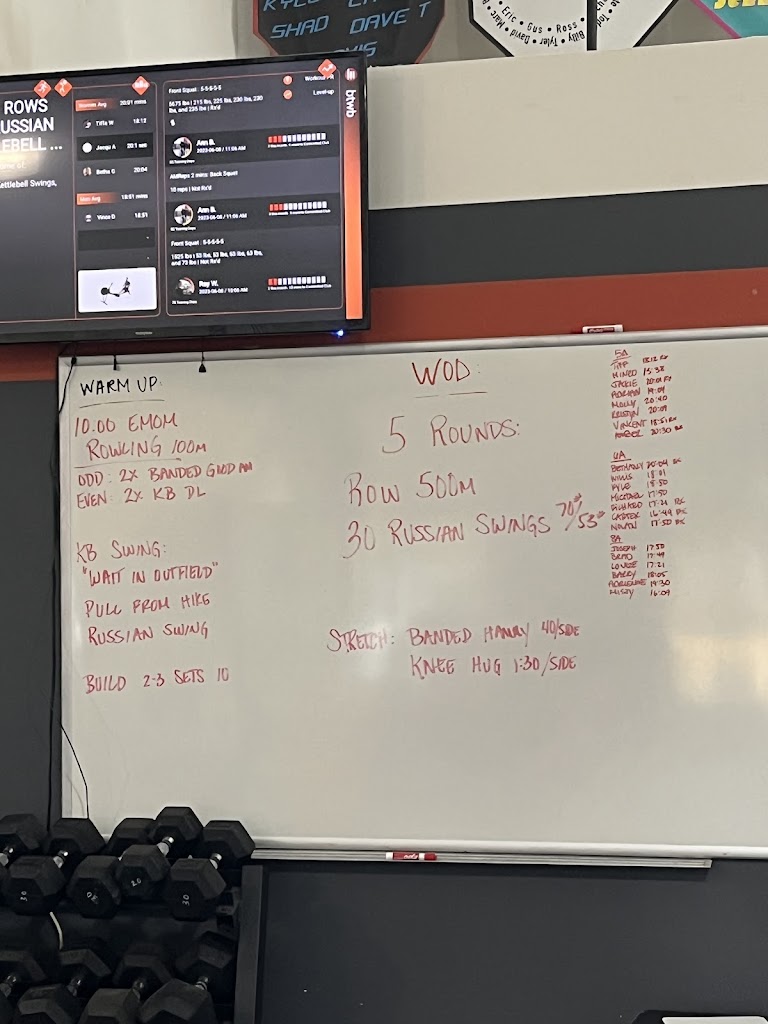 SHAD DAVE T
Eric • Gus • Ross
Billy • Tyler • David • Marc
ROWS
USSIAN
EBELL ...
ettlebell Swings,
Women Avg 20:01 mins
Tiffa W 18:12
Jacqui A
Betha G 20:04
Men Avg 18:51 mins
Vince D 18:51
Front Squat : 5-5-5-5-5
5675 lbs | 215 lbs, 225 lbs, 230 lbs, 230
lbs, and 235 lbs | Rx'd
Level-up
btwb
Ann B.
2023-06-08 / 11:06 AM
AMReps 2 mins: Back Squat
10 reps | Not Rx'd
Ann B.
2023-06-08 / 11:06 AM
Front Squat : 5-5-5-5-5
1525 lbs | 53 lbs, 53 lbs, 63 lbs, 63 lbs,
and 73 lbs | Not Rx'd
Roy W.
2023-06-08 / 10:06 AM
WARM UP:
10:00 EMOM
ROWLING 100M
ODD: 2X BANDED GOOD AM
EVEN: 2X KB DL
KB SWING:
"WAIT IN OUTFIELD"
PULL FROM HIKE
RUSSIAN SWING
BUILD 2-3 SETS 10
WOD:
5 ROUNDS:
ROW 500M
30 RUSSIAN SWINGS 70#/53#
STRETCH: BANDED HAMMY 40/SIDE
KNEE HUG 1:30/SIDE
5A
TIFF 18:12 RX
15:38
JACKIE 20:01 RX
ADRIAN 19:04
MOLLY 20:40
KRISTYN 20:09
VINCENT 18:51 RX
AMBER 20:30 RX
BETHANY 20:04 RX
WILLIS 18:01
KYLE 18:50
MICHAEL 17:50
RICHARD 17:21 RX
CARTER 16:49 RX
NOLAN 17:50 RX
8A
JOSEPH 17:50
BRAD 17:49
LOUISE 17:21
BARRY 18:05
ADRIENNE 19:30
MISTY 16:09
30
20
30